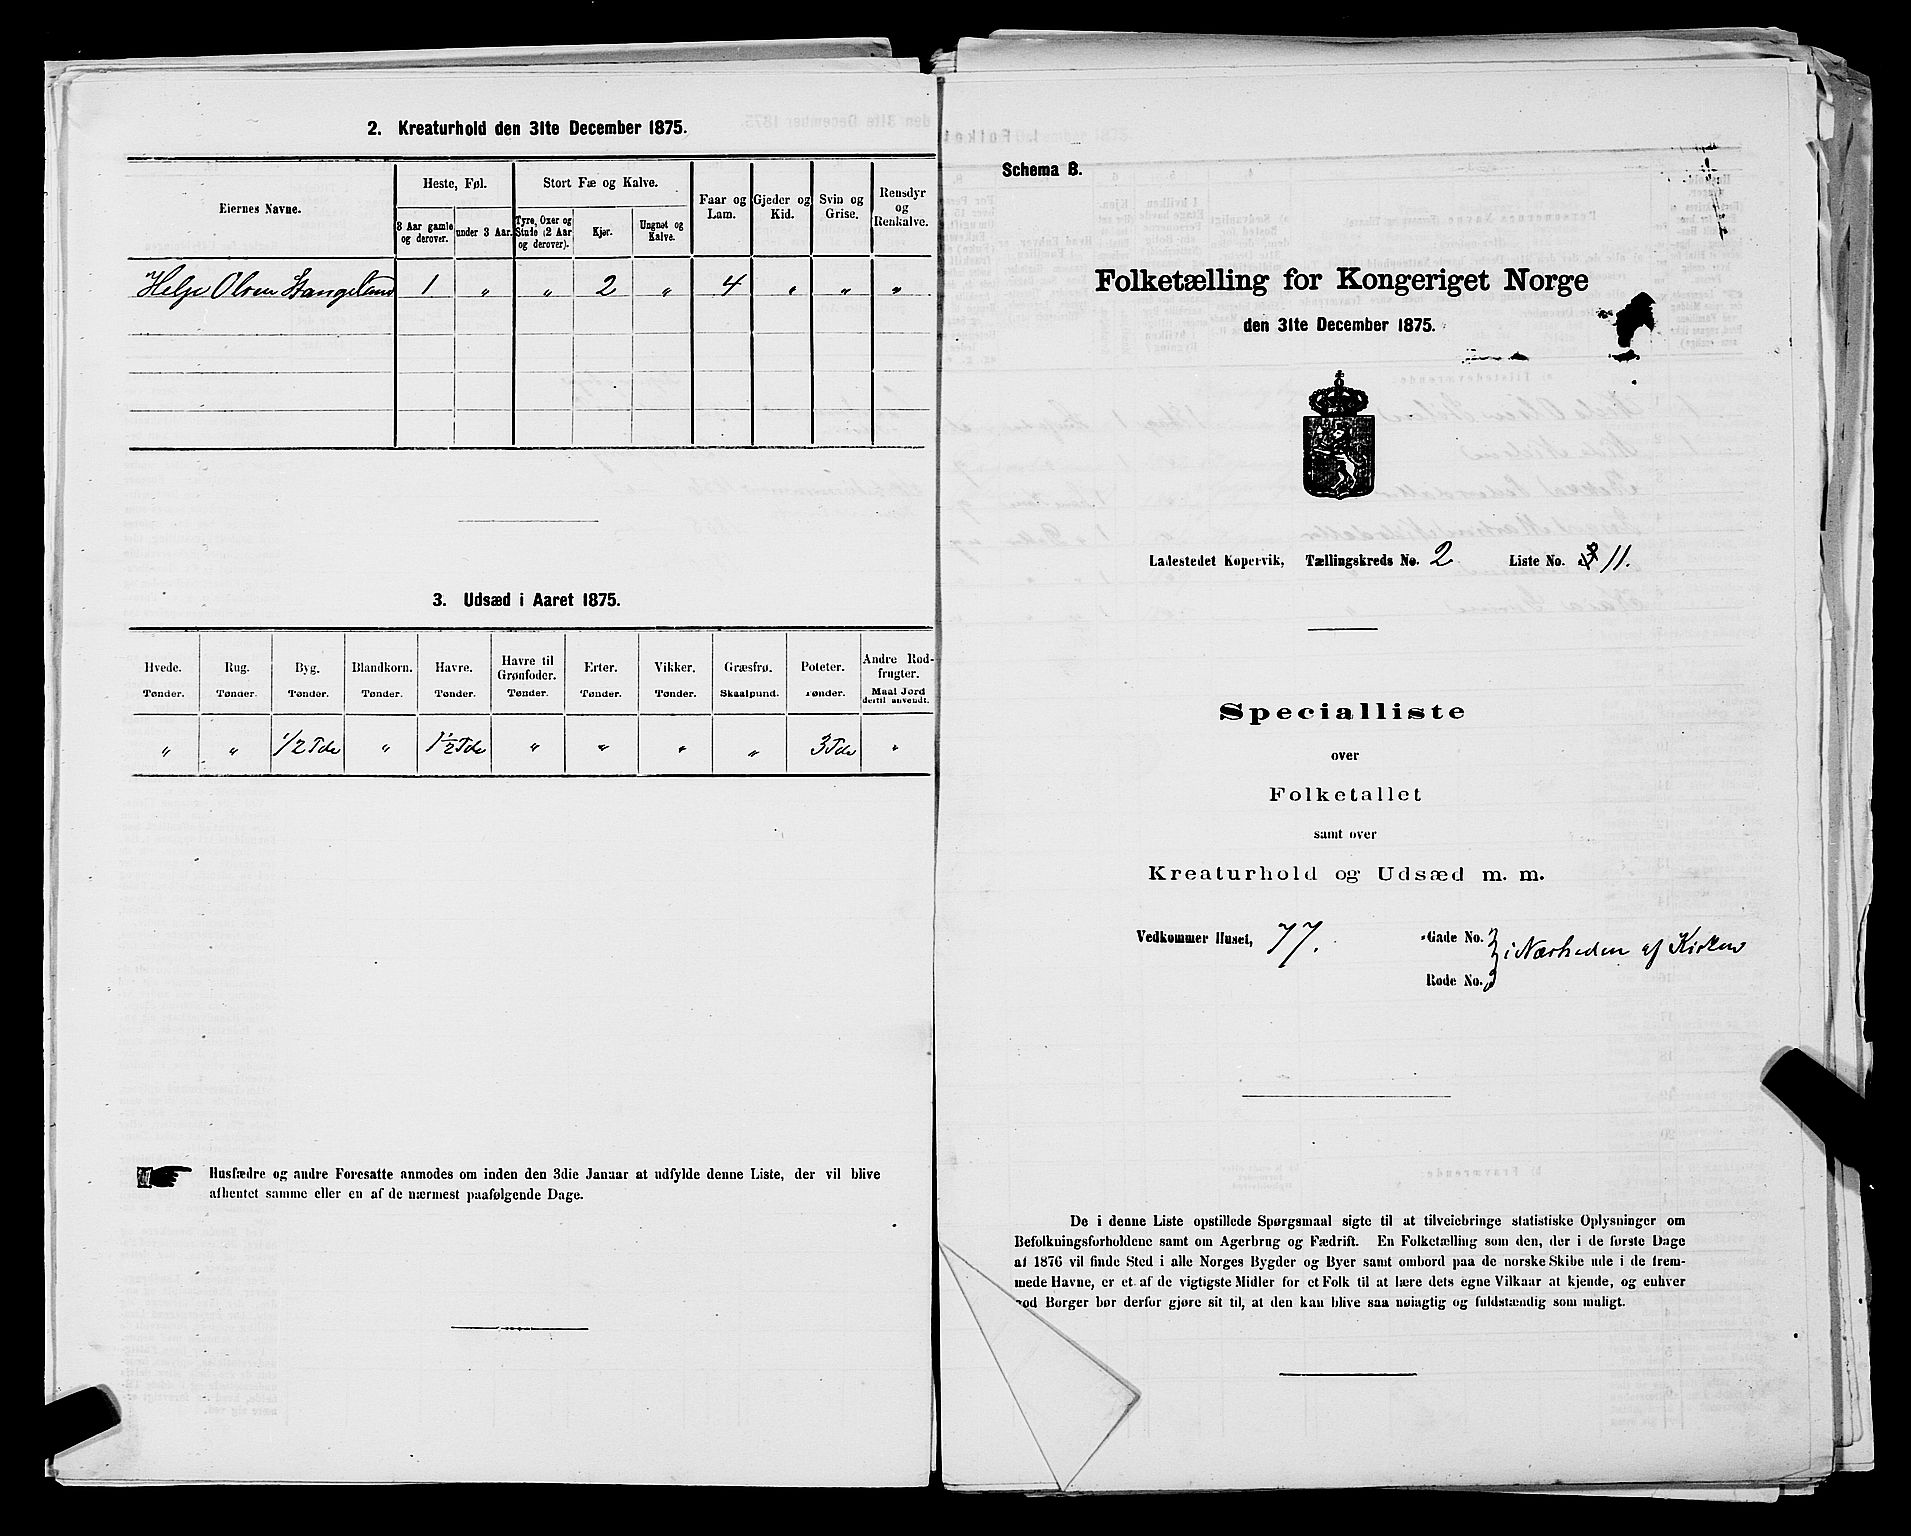 2. Kreaturhold den 31te December 1875.
Eiernes Navne.
Heste, Føl.
Stort Fæ og Kalve.
Faar og Lam.
Gjeder og Kid.
Svin og Grise.
Rensdyr og Renkalve.
3 Aar gamle og derover.
under 3 Aar.
Tyre, Oxer og Stude (2 Aar og derover).
Kjør.
Ungnøt og Kalve.
Helje Olsen Stangeland 1 " " 2 " 4 " " "
3. Udsæd i Aaret 1875.
Hvede. Rug. Byg. Blandkorn. Havre. Havre til Grønfoder. Erter. Vikker. Græsfrø. Poteter. Andre Rodfrugter.
Tønder. Tønder. Tønder. Tønder. Tønder. Tønder. Tønder. Tønder. Skaalpund. Tønder. Maal Jord dertil anvendt.
" " 1/2 Tde " 1 1/2 Tde " " " " 3 Tde "
Husfædre og andre Foresatte anmodes om inden den 3die Januar at udfylde denne Liste, der vil blive
afhentet samme eller en af de nærmest paafølgende Dage.
Schema B.
Folketælling for Kongeriget Norge
den 31te December 1875.
Ladestedet Kopervik, Tællingskreds No. 2 Liste No. 11.
Specialliste
over
Folketallet
samt over
Kreaturhold og Udsæd m. m.
Vedkommer Huset, 77. Gade No.
i Nærheden af Kirken
Rode No.
De i denne Liste opstillede Spørgsmaal sigte til at tilveiebringe statistiske Oplysninger om
Befolkningsforholdene samt om Agerbrug og Fædrift. En Folketælling som den, der i de første Dage
af 1876 vil finde Sted i alle Norges Bygder og Byer samt ombord paa de norske Skibe ude i de frem-
mede Havne, er et af de vigtigste Midler for et Folk til at lære dets egne Vilkaar at kjende, og enhver
god Borger bør derfor gjøre sit til, at den kan blive saa nøiagtig og fuldstændig som muligt.